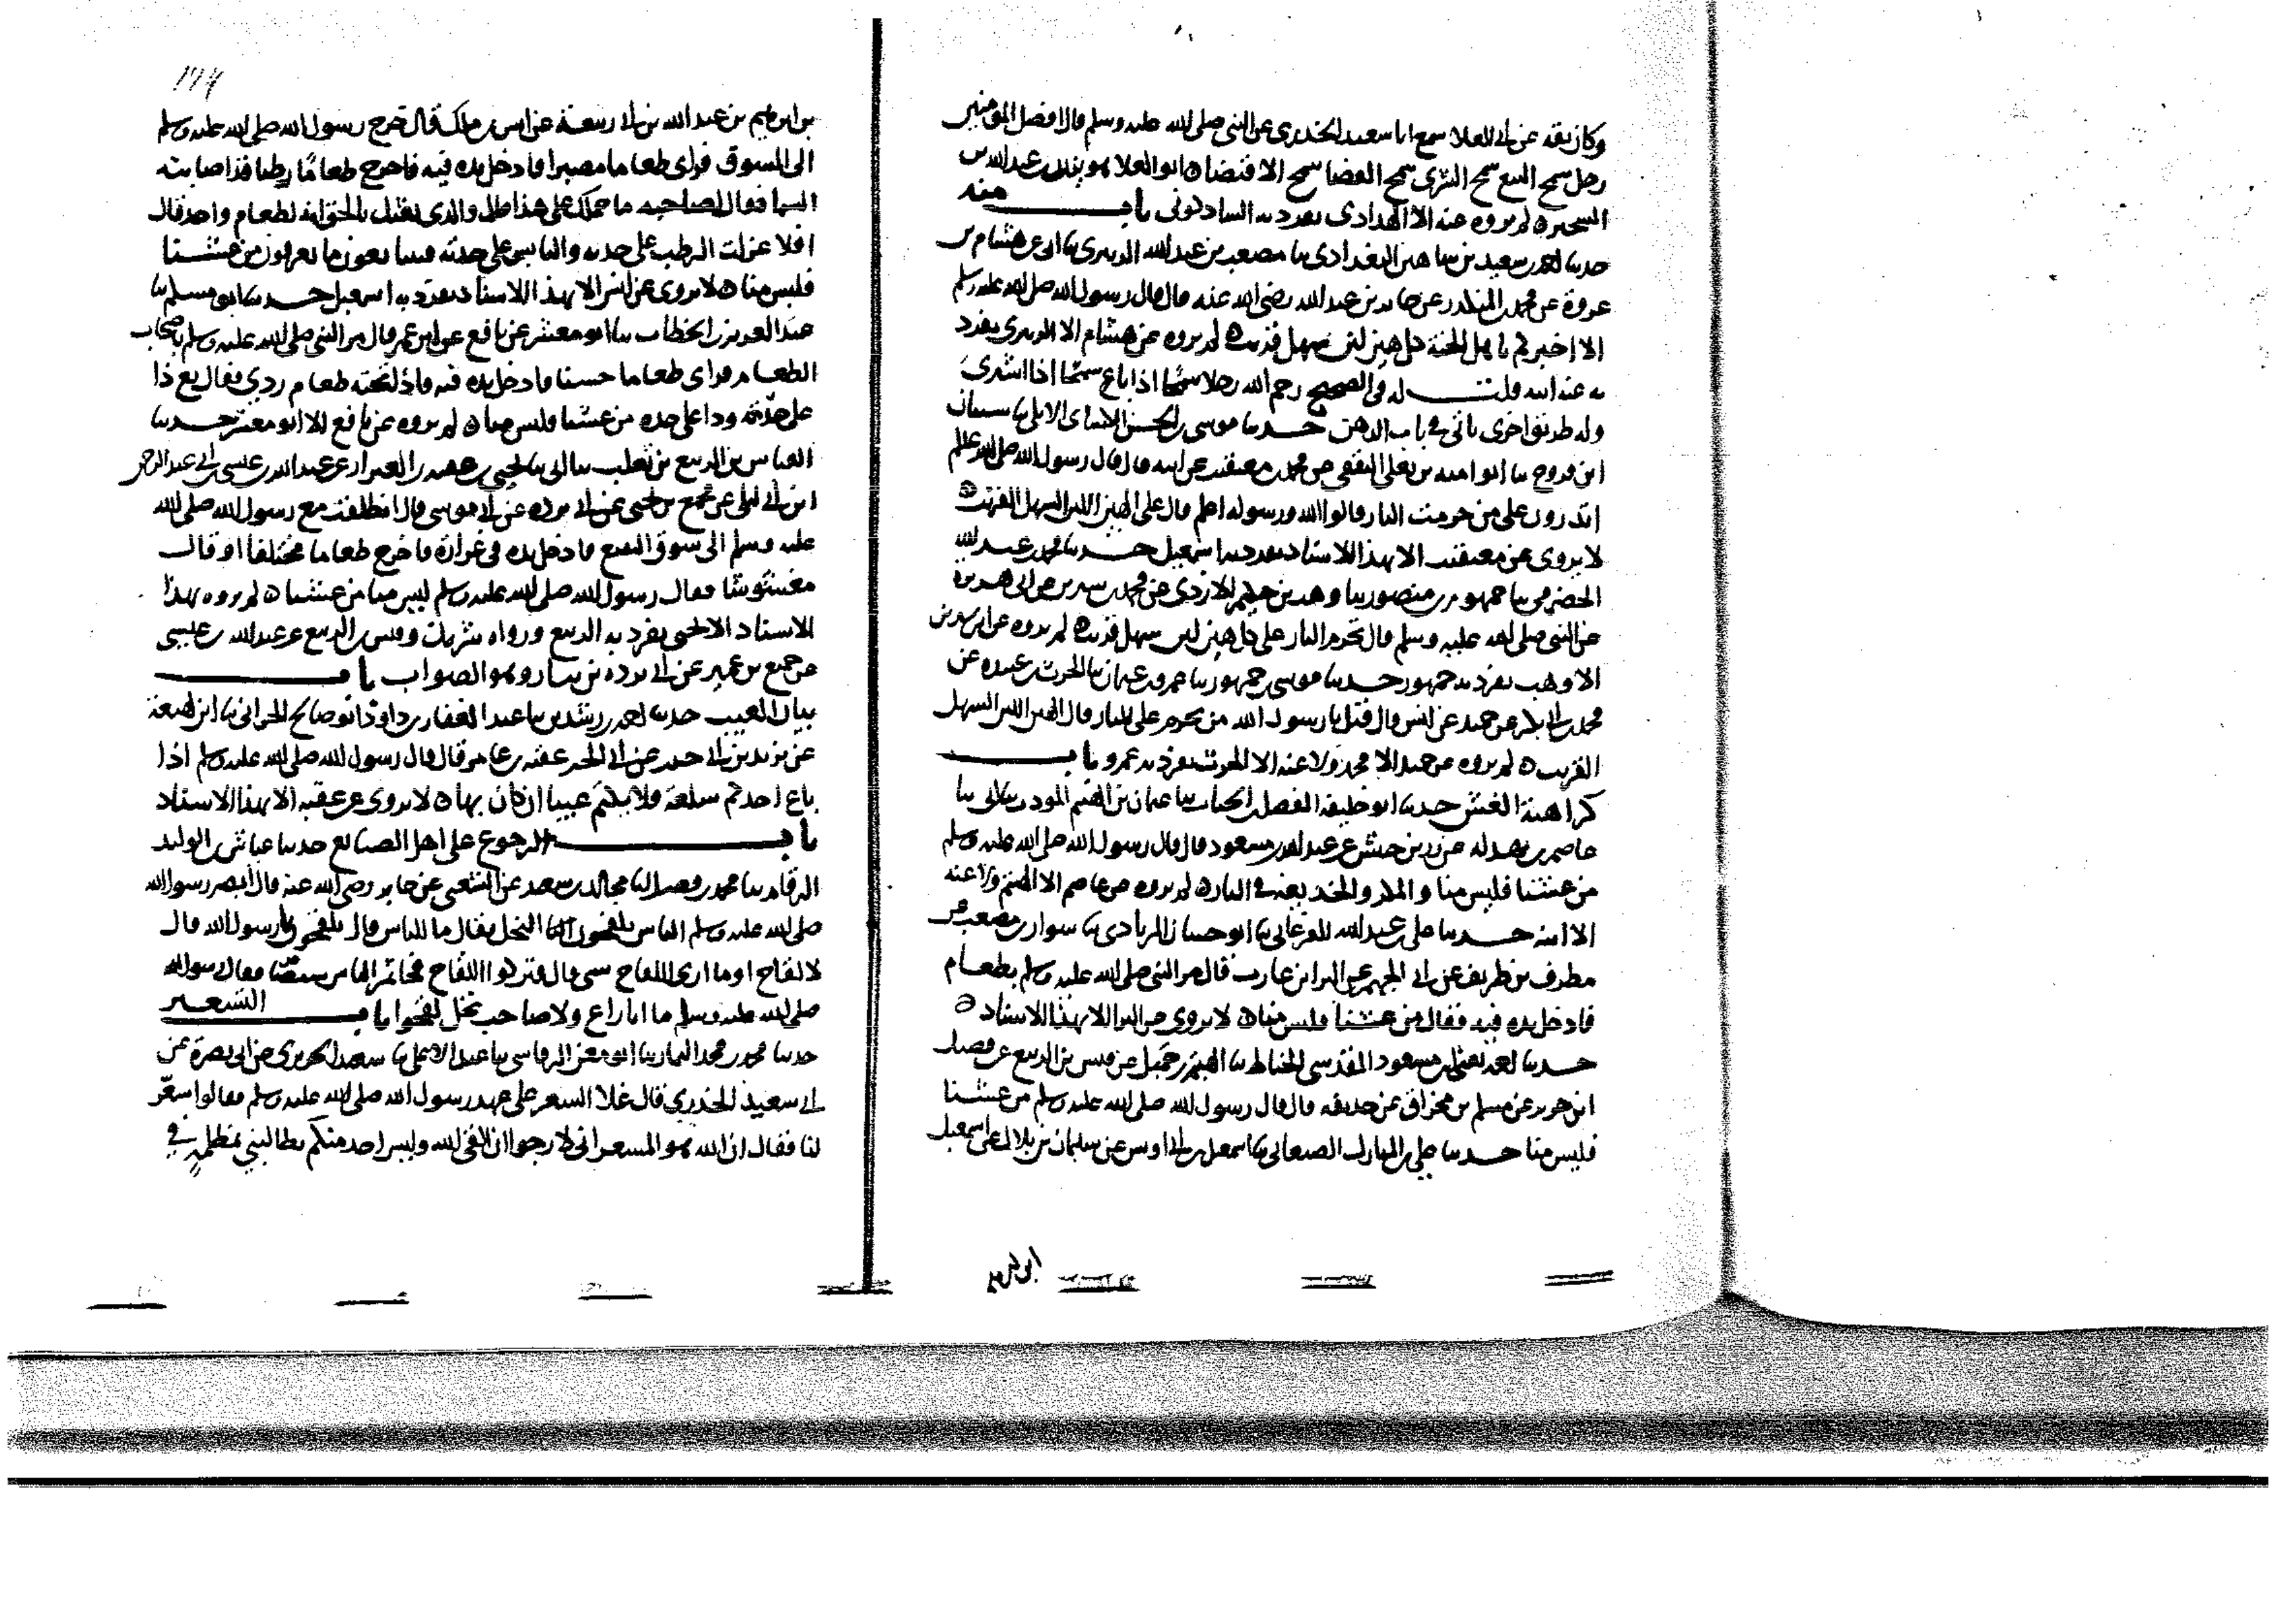 وكان ثقة عن ابي العلاء سمع ابا سعيد الخدري عن النبي صلى الله عليه وسلم قال افضل المؤمنين
رجل سمح البيع سمح الشرى سمح القضا سمح الاقتضا ابو العلا هو يزيد بن عبد الله بن
الشخير لم يروه عنه الا الهدادي تفرد به الشاذكوني باب منه
حدثنا احمد بن سعيد بن شاهين البغدادي ثنا مصعب بن عبد الله الزبيري ثنا ابي عن هشام بن
عروة عن محمد بن المنكدر عن جابر بن عبد الله رضي الله عنه قال قال رسول الله صلى الله عليه وسلم
الا اخبركم باهل الجنة كل هين لين سهل قريب لم يروه عن هشام الا الزبيري تفرد
به عنه ابنه قلت له في الصحيح رحم الله رجلا سمحا اذا باع سمحا اذا اشترى
وله طريق اخرى تاتي في باب الدهن حدثنا موسى بن الحسن الابلي ثنا شيبان
ابن فروخ ثنا ابو امية بن يعلى الثقفي عن محمد بن معيقيب عن ابيه قال قال رسول الله صلى الله عليه وسلم
اتدرون على من حرمت النار قالوا الله ورسوله اعلم قال على الهين اللين السهل القريب
لا يروى عن معيقيب الا بهذا الاسناد تفرد به اسمعيل حدثنا محمد بن عبد الله
الحضرمي ثنا جمهور بن منصور ثنا وهب بن حكيم الازدي عن محمد بن سيرين عن ابي هريرة
عن النبي صلى الله عليه وسلم قال تحرم النار على كل هين لين سهل قريب لم يروه عن ابن سيرين
الا وهب تفرد به جمهور حدثنا موسى بن جمهور ثنا عمرو بن عثمان ثنا الحرث بن عبيدة عن
محمد بن ابي بكر عن حميد عن انس قال قيل يا رسول الله من يحرم على النار قال الهين اللين السهل
القريب لم يروه عن حميد الا محمد ولا عنه الا الحرث تفرد به عمرو باب
كراهية الغش حدثنا ابو خليفة الفضل بن الحباب ثنا عثمان بن الهيثم المؤذن ثنا ابي ثنا
عاصم بن بهدلة عن زر بن حبيش عن عبد الله بن مسعود قال قال رسول الله صلى الله عليه وسلم
من غشنا فليس منا والمكر والخديعة في النار لم يروه عن عاصم الا الهيثم ولا عنه
الا ابنه حدثنا علي بن عبد الله الفرغاني ثنا ابو حسان الزيادي ثنا سوار بن مصعب عن
مطرف بن طريف عن ابي الجهم عن البرا بن عازب قال مر النبي صلى الله عليه وسلم بطعام
فادخل يده فيه فقال من غشنا فليس منا لا يروى عن البرا الا بهذا الاسناد
حدثنا احمد بن مسعود المقدسي الخياط ثنا الهيثم بن جميل عن قيس بن الربيع عن فضيل
ابن جرير عن مسلم بن مخراق عن حذيفة قال قال رسول الله صلى الله عليه وسلم من غشنا
فليس منا حدثنا علي بن المبارك الصنعاني ثنا اسمعيل بن ابي اويس عن سليمان بن بلال عن اسمعيل
بن ابرهيم بن عبد الله بن ابي ربيعة عن انس بن ملك قال خرج رسول الله صلى الله عليه وسلم
الى السوق فراى طعاما مصبرا فادخل يده فيه فاخرج طعاما رطبا قد اصابته
السما فقال لصاحبه ما حملك على هذا قال والذي بعثك بالحق انه لطعام واحد قال
افلا عزلت الرطب على حدته واليابس على حدته فيتبايعون ما يعرفون من غشنا
فليس منا لا يروى عن انس الا بهذا الاسناد تفرد به اسمعيل حدثنا ابو مسلم ثنا
عبد العزيز بن الخطاب ثنا ابو معشر عن نافع عن ابن عمر قال مر النبي صلى الله عليه وسلم بصحاب
الطعام فراى طعاما حسنا فادخل يده فيه فاذا تحته طعام ردي فقال بع ذا
على حدته وذا على حده من غشنا فليس منا لم يروه عن نافع الا ابو معشر حدثنا
العباس بن الربيع بن تغلب ثنا ابي ثنا يحيى بن عقبة بن ابي العيزار عن عبد الله بن عيسى بن عبد الرحمن
ابن ابي ليلى عن جميع بن عن ابي بردة عن ابي موسى قال انطلقت مع رسول الله صلى الله
عليه وسلم الى سوق البقيع فادخل يده في غرارة فاخرج طعاما مختلفا او قال
مغشوشا فقال رسول الله صلى الله عليه وسلم ليس منا من غشنا لم يروه بهذا
الاسناد الا يحيى تفرد به الربيع ورواه شريك وقيس بن الربيع عن عبد الله بن عيسى
عن جميع بن عمير عن ابي بردة بن نيار وهو الصواب باب
بيان العيب حدثنا احمد بن رشدين ثنا عبد الغفار بن داود ابو صالح الحراني ثنا ابن لهيعة
عن يزيد بن ابي حبيب عن ابي الخير عن عقبة بن عامر قال قال رسول الله صلى الله عليه وسلم اذا
باع احدكم سلعة فلا يكتم عيبا ان كان بها لا يروى عن عقبة الا بهذا الاسناد
باب الرجوع على اهل الصنايع حدثنا عياش بن الوليد
الرقام ثنا محمد بن فضيل ثنا مجالد بن سعيد عن الشعبي عن جابر رضي الله عنه قال ابصر رسول الله
صلى الله عليه وسلم الناس يلقحون النخل فقال ما للناس قال يلقحون يا رسول الله قال
لا لقاح او ما ارى اللقاح شي قال فتركوا اللقاح فجا تمر الناس شيصا فقال رسول الله
صلى الله عليه وسلم ما انا بزراع ولا صاحب نخل لقحوا باب التسعير
حدثنا محمد بن محمد التمار ثنا ابو معن الرقاشي ثنا عبد الاعلى ثنا سعيد الجريري عن ابي نضرة عن
ابي سعيد الخدري قال غلا السعر على عهد رسول الله صلى الله عليه وسلم فقالوا سعر
لنا فقال ان الله هو المسعر اني لارجو ان القى الله وليس احد منكم يطالبني بمظلمة في